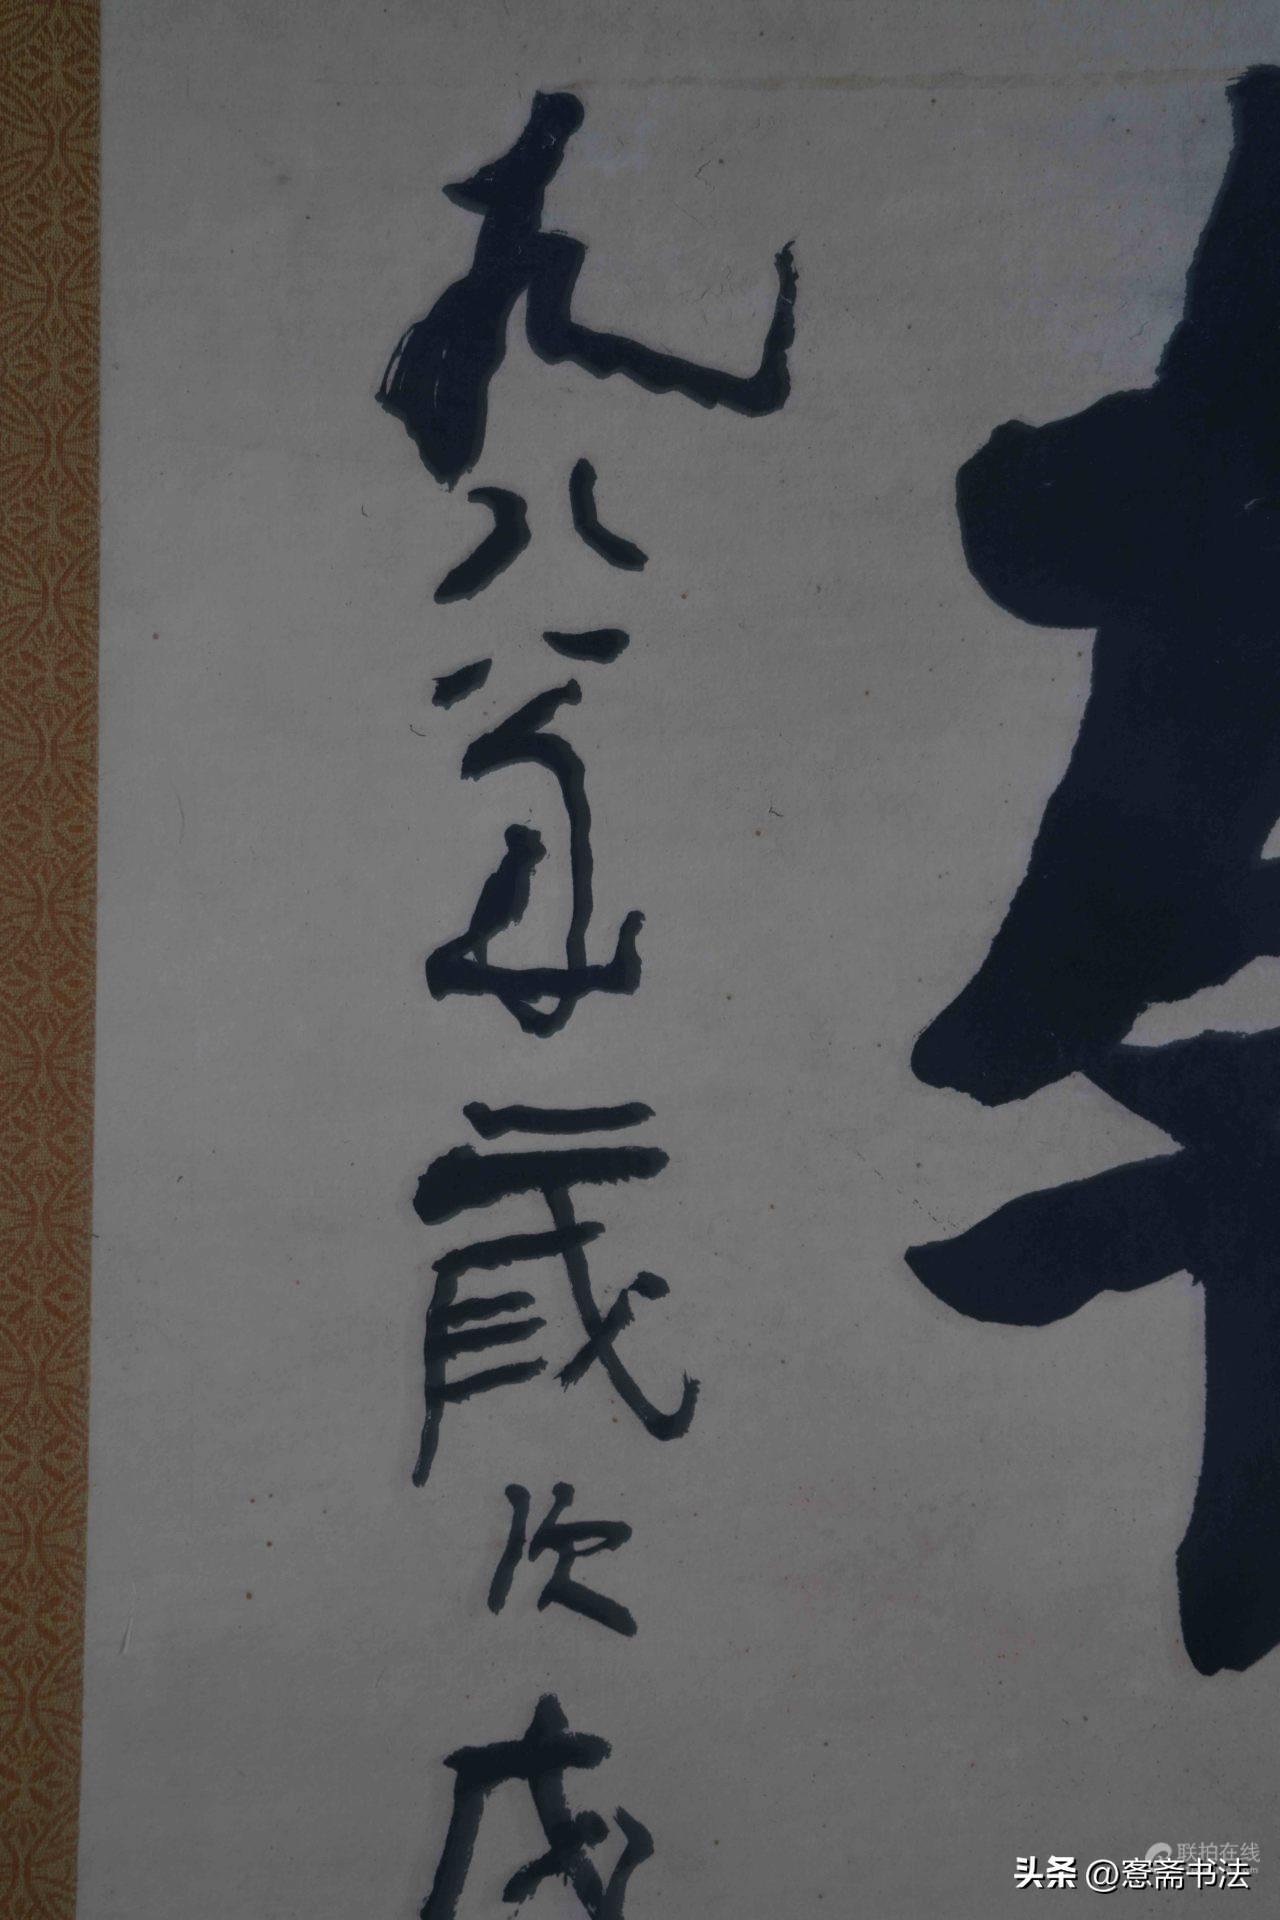 九八翁歲次戊
联拍在线
头条 @愙斋书法